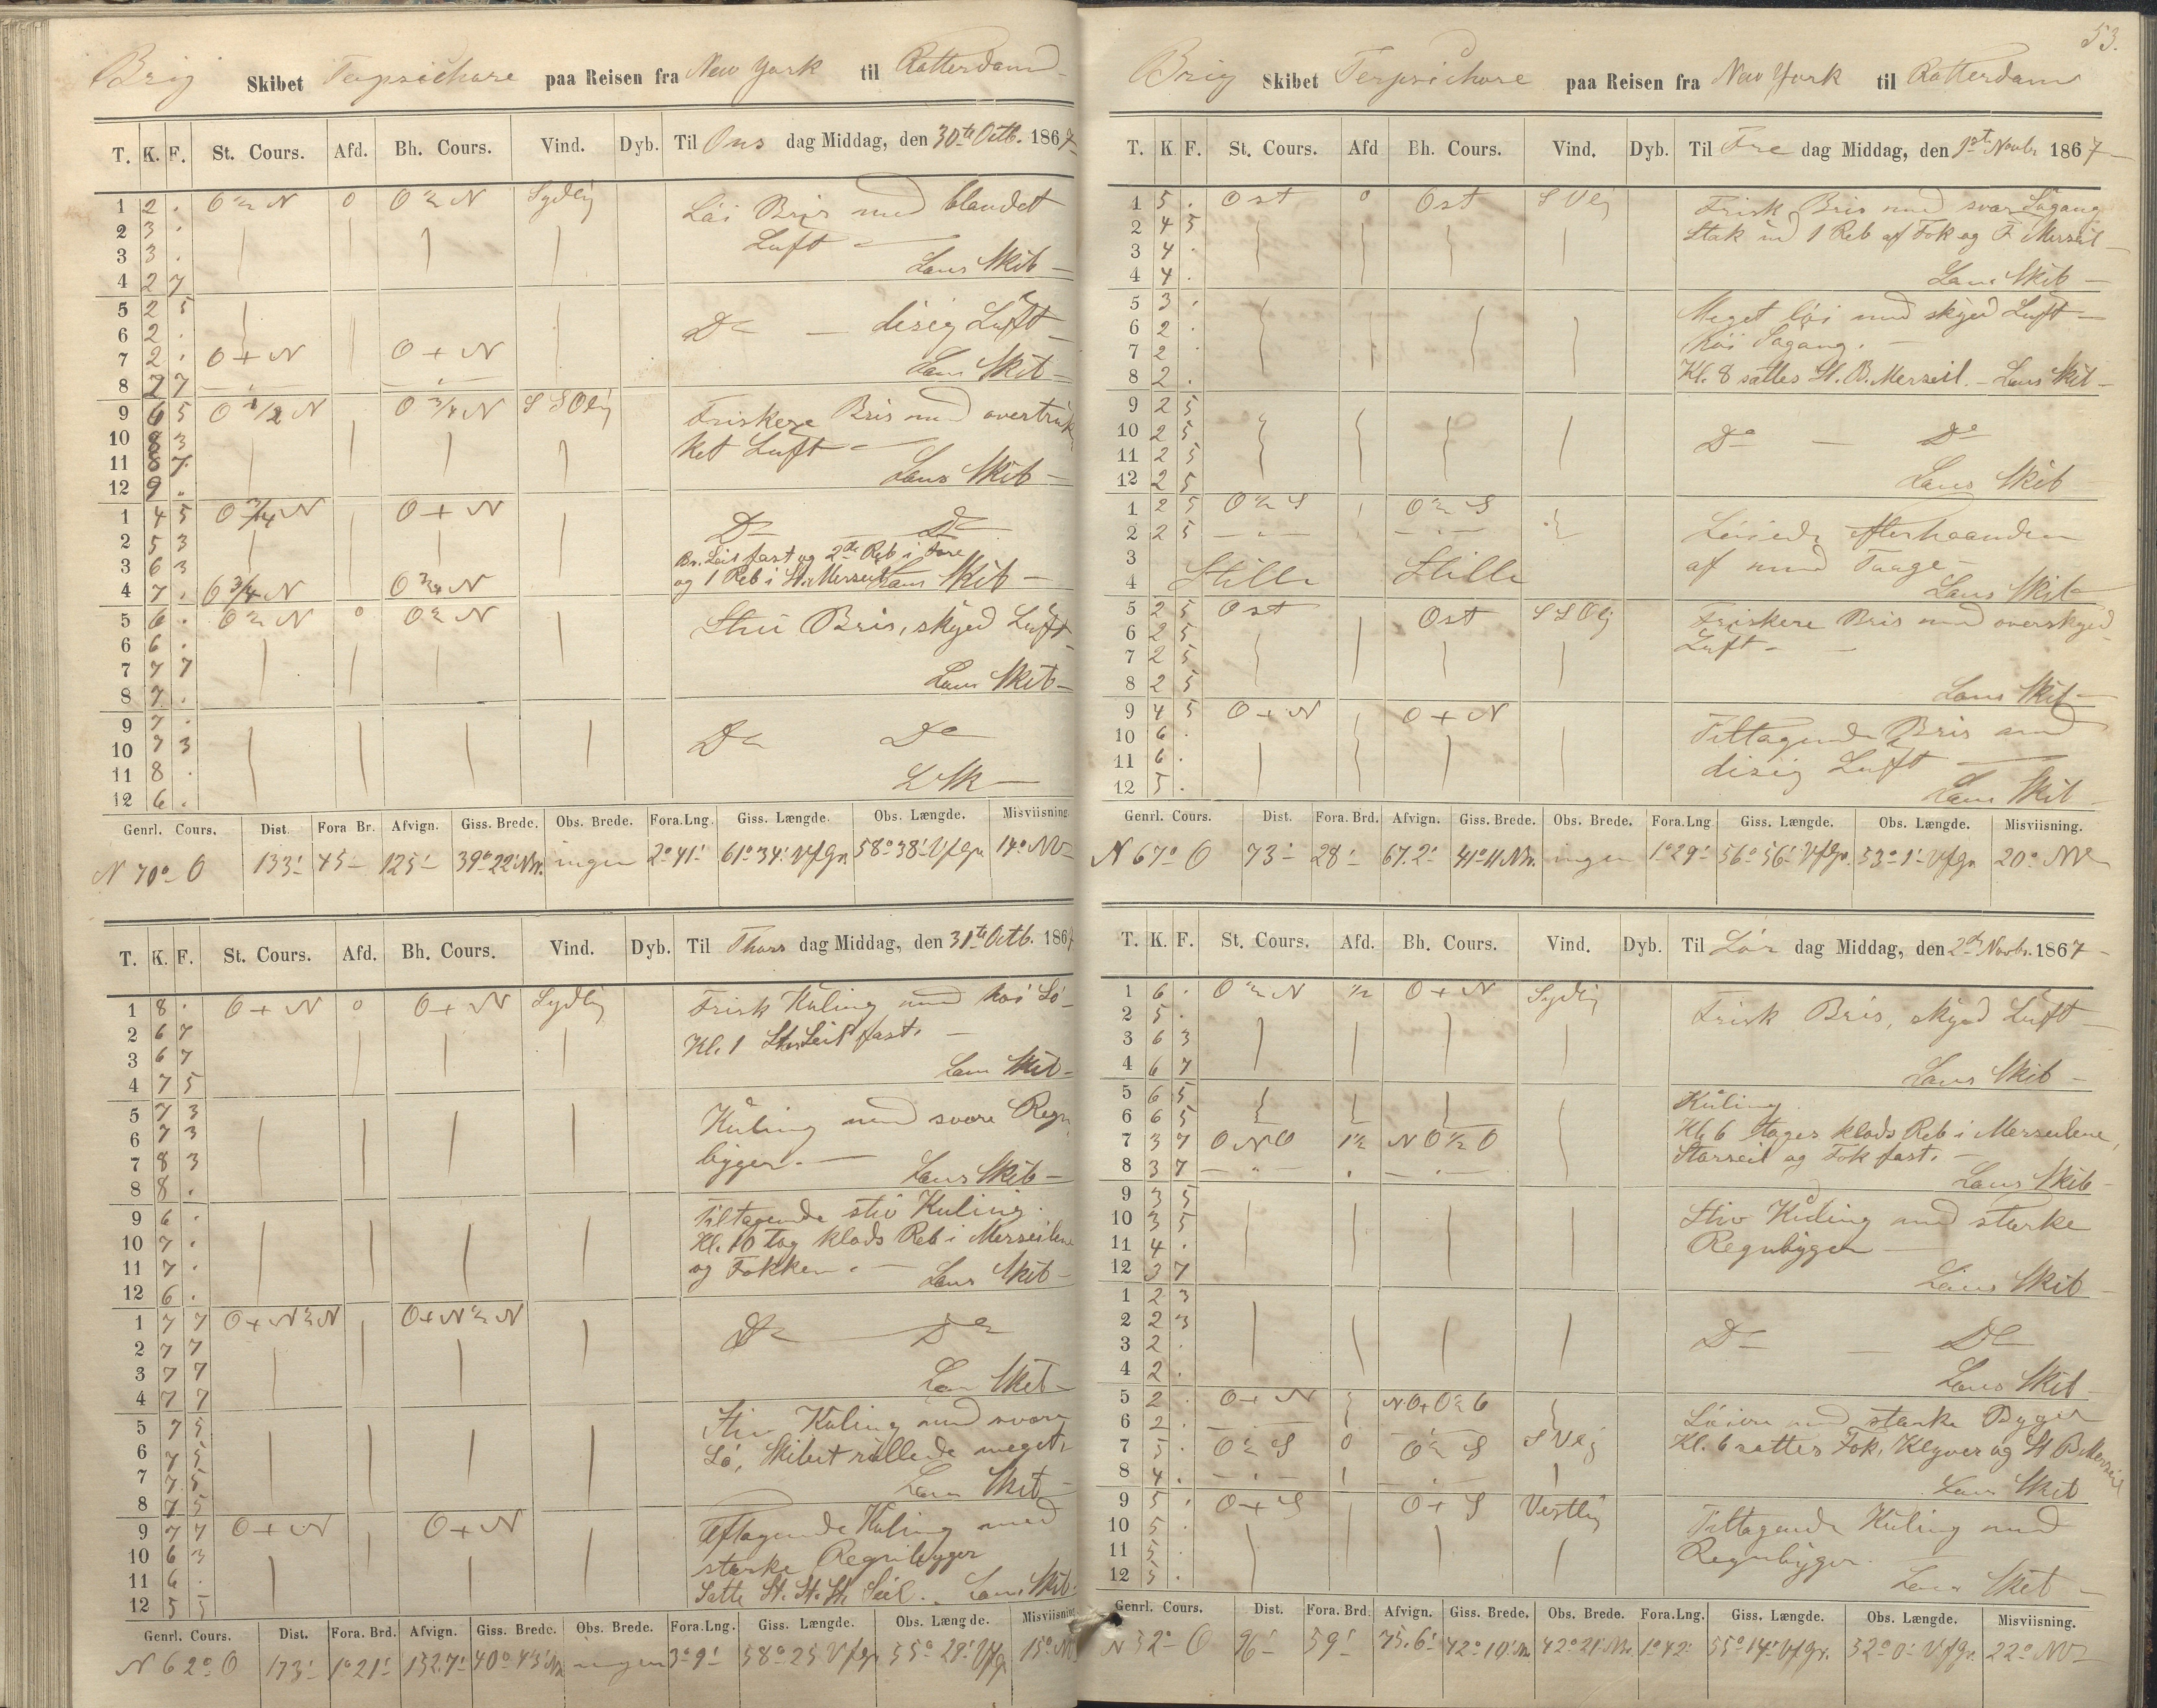 Brig Skibet Terpsichore paa Reisen fra New York til Rotterdam
T. K. F. St. Cours. Afd. Bh. Cours. Vind. Dyb. Til Ons dag Middag, den 30te Octb. 1867
1 2 . O ½ N 0 O ½ N Sydlig Löi Bris med blandet
2 3 . Luft
3 3 . Lens Skib
4 2 7
5 2 5
6 2 . Do disig Luft
7 2 . O + N O + N Lens Skib
8 2 7
9 6 5 O ½ N O ¾ N SSOlig Friskere Bris med overtruk
10 8 3 ket Luft
11 8 7 Lens Skib
12 9 .
1 4 5 O ¾ N O + N Do Do
2 5 3 Br. Seil fast og 2de Reb i Fore
3 6 3 og 1 Reb i St. Merseil Lens Skib
4 7 . O ¾ N O ¾ N
5 6 . O ½ N 0 O ½ N Stiv Bris, skyed Luft
6 6 .
7 7 7 Lens Skib
8 7 .
9 7 .
10 7 3 Do Do
11 8 . L Sk
12 6 .
Genrl. Cours. Dist. Fora Br. Afvign. Giss. Brede. Obs. Brede. Fora.Lng. Giss. Længde. Obs. Længde. Misviisning
N 70° O 133' 45 125' 39° 22' N. ingen 2° 41' 61° 34' V f Gr. 58° 38' V f Gr. 14° NV
T. K. F. St. Cours. Afd. Bh. Cours. Vind. Dyb. Til Thors dag Middag, den 31te Octb. 1867
1 8 . O + N 0 O + N Sydlig Frisk Kuling med høi Sö
2 6 7 Kl. 1 Stor Seil fast.
3 6 7 Lens Skib
4 7 5
5 7 3 Kuling med svare Regn
6 7 3
7 8 3 bygger. Lens Skib
8 8 .
9 6 . Tiltagende stiv Kuling.
10 7 . Kl. 10 tog klods Reb i Merseilene
11 7 . og Fokken. Lens Skib
12 6 .
1 7 7 O + N ½ N O + N ½ N Do Do
2 7 7
3 7 7 Lens Skib
4 7 7
5 7 5 Stiv Kuling med svare
6 7 5 Sö, Skibet rullede meget.
7 7 5 Lens Skib
8 7 5
9 7 7 O + N O + N Aftagende Kuling med
10 6 3 stærke Regnbygger
11 6 . Satte St. St. St. Seil. Lens Skib
12 5 5
Genrl. Cours. Dist. Fora. Brd. Afvign. Giss. Brede. Obs. Brede. Fora.Lng. Giss. Længde. Obs. Længde. Misviisning
N 62° O 173' 1° 21' 152.7' 40° 43' N. ingen 3° 9' 58° 25' V f Gr. 55° 29' V f Gr. 15° NV
53.
Brig Skibet Terpsichore paa Reisen fra New York til Rotterdam
T. K F. St. Cours. Afd Bh. Cours. Vind. Dyb. Til Fre dag Middag, den 1ste Novbr. 1867
1 5 . Ost 0 Ost SVlig Frisk Bris med svar Sögang
2 4 5 Stak ud 1 Reb af Fok og F Merseil
3 4 .
4 4 . Lens Skib
5 3 . Meget löi med skyed Luft
6 2 . høi Sögang.
7 2 .
8 2 . Kl. 8 sattes St. B. Merseil. Lens Skib
9 2 5
10 2 5 Do Do
11 2 5
12 2 5 Lens Skib
1 2 5 O ½ S O ½ S Löiede efterhaanden
2 2 5
3 af med Taage
4 Stille Stille Lens Skib
5 2 5 Ost Ost SSOlig Friskere Bris med overskyed
6 2 5 Luft.
7 2 5
8 2 5 Lens Skib
9 4 5 O + N O + N Tiltagende Bris med
10 6 .
11 6 . disig Luft
12 5 . Lens Skib
Genrl. Cours. Dist. Fora. Brd. Afvign. Giss. Brede. Obs. Brede. Fora.Lng Giss. Længde. Obs. Længde. Misviisning.
N 67° O 73' 28' 67.2' 41° 11' N. ingen 1° 29' 56° 56' V f Gr. 53° 1' V f Gr. 20° NV
T. K. F. St. Cours. Afd. Bh. Cours. Vind. Dyb. Til Lör dag Middag, den 2de Novbr. 1867
1 6 . O ½ N ½ O + N Sydlig Frisk Bris, skyed Luft
2 5 .
3 6 3
4 6 7 Lens Skib
5 6 5 Kuling.
6 6 5 Kl. 6 toges klods Reb i Merseilene,
7 3 7 ONO 1½ NO ½ O Storseil og Fok fast.
8 3 7 Lens Skib
9 3 5 Stiv Kuling med stærke
10 3 5 Regnbygger
11 4 .
12 3 7 Lens Skib
1 2 3
2 2 3 Do Do
3 2 .
4 2 . Lens Skib
5 2 . O + N NO + O ½ O Löiere med stærke Bygger
6 2 . Kl. 6 sattes Fok, Klyver og St B Merseil
7 5 . O ½ S 0 O ½ S SVlig
8 4 . Lens Skib
9 5 . O + S O + S Vestlig Tiltagende Kuling med
10 5 .
11 5 . Regnbygger.
12 5 . Lens Skib
Genrl. Cours. Dist. Fora. Brd. Afvign. Giss. Brede. Obs. Brede. Fora.Lng. Giss. Længde. Obs. Længde. Misviisning.
N 52° O 96' 59' 75.6' 42° 10' N. 42° 21' N. 1° 42' 55° 14' V f Gr. 52° 0' V f Gr. 22° NV